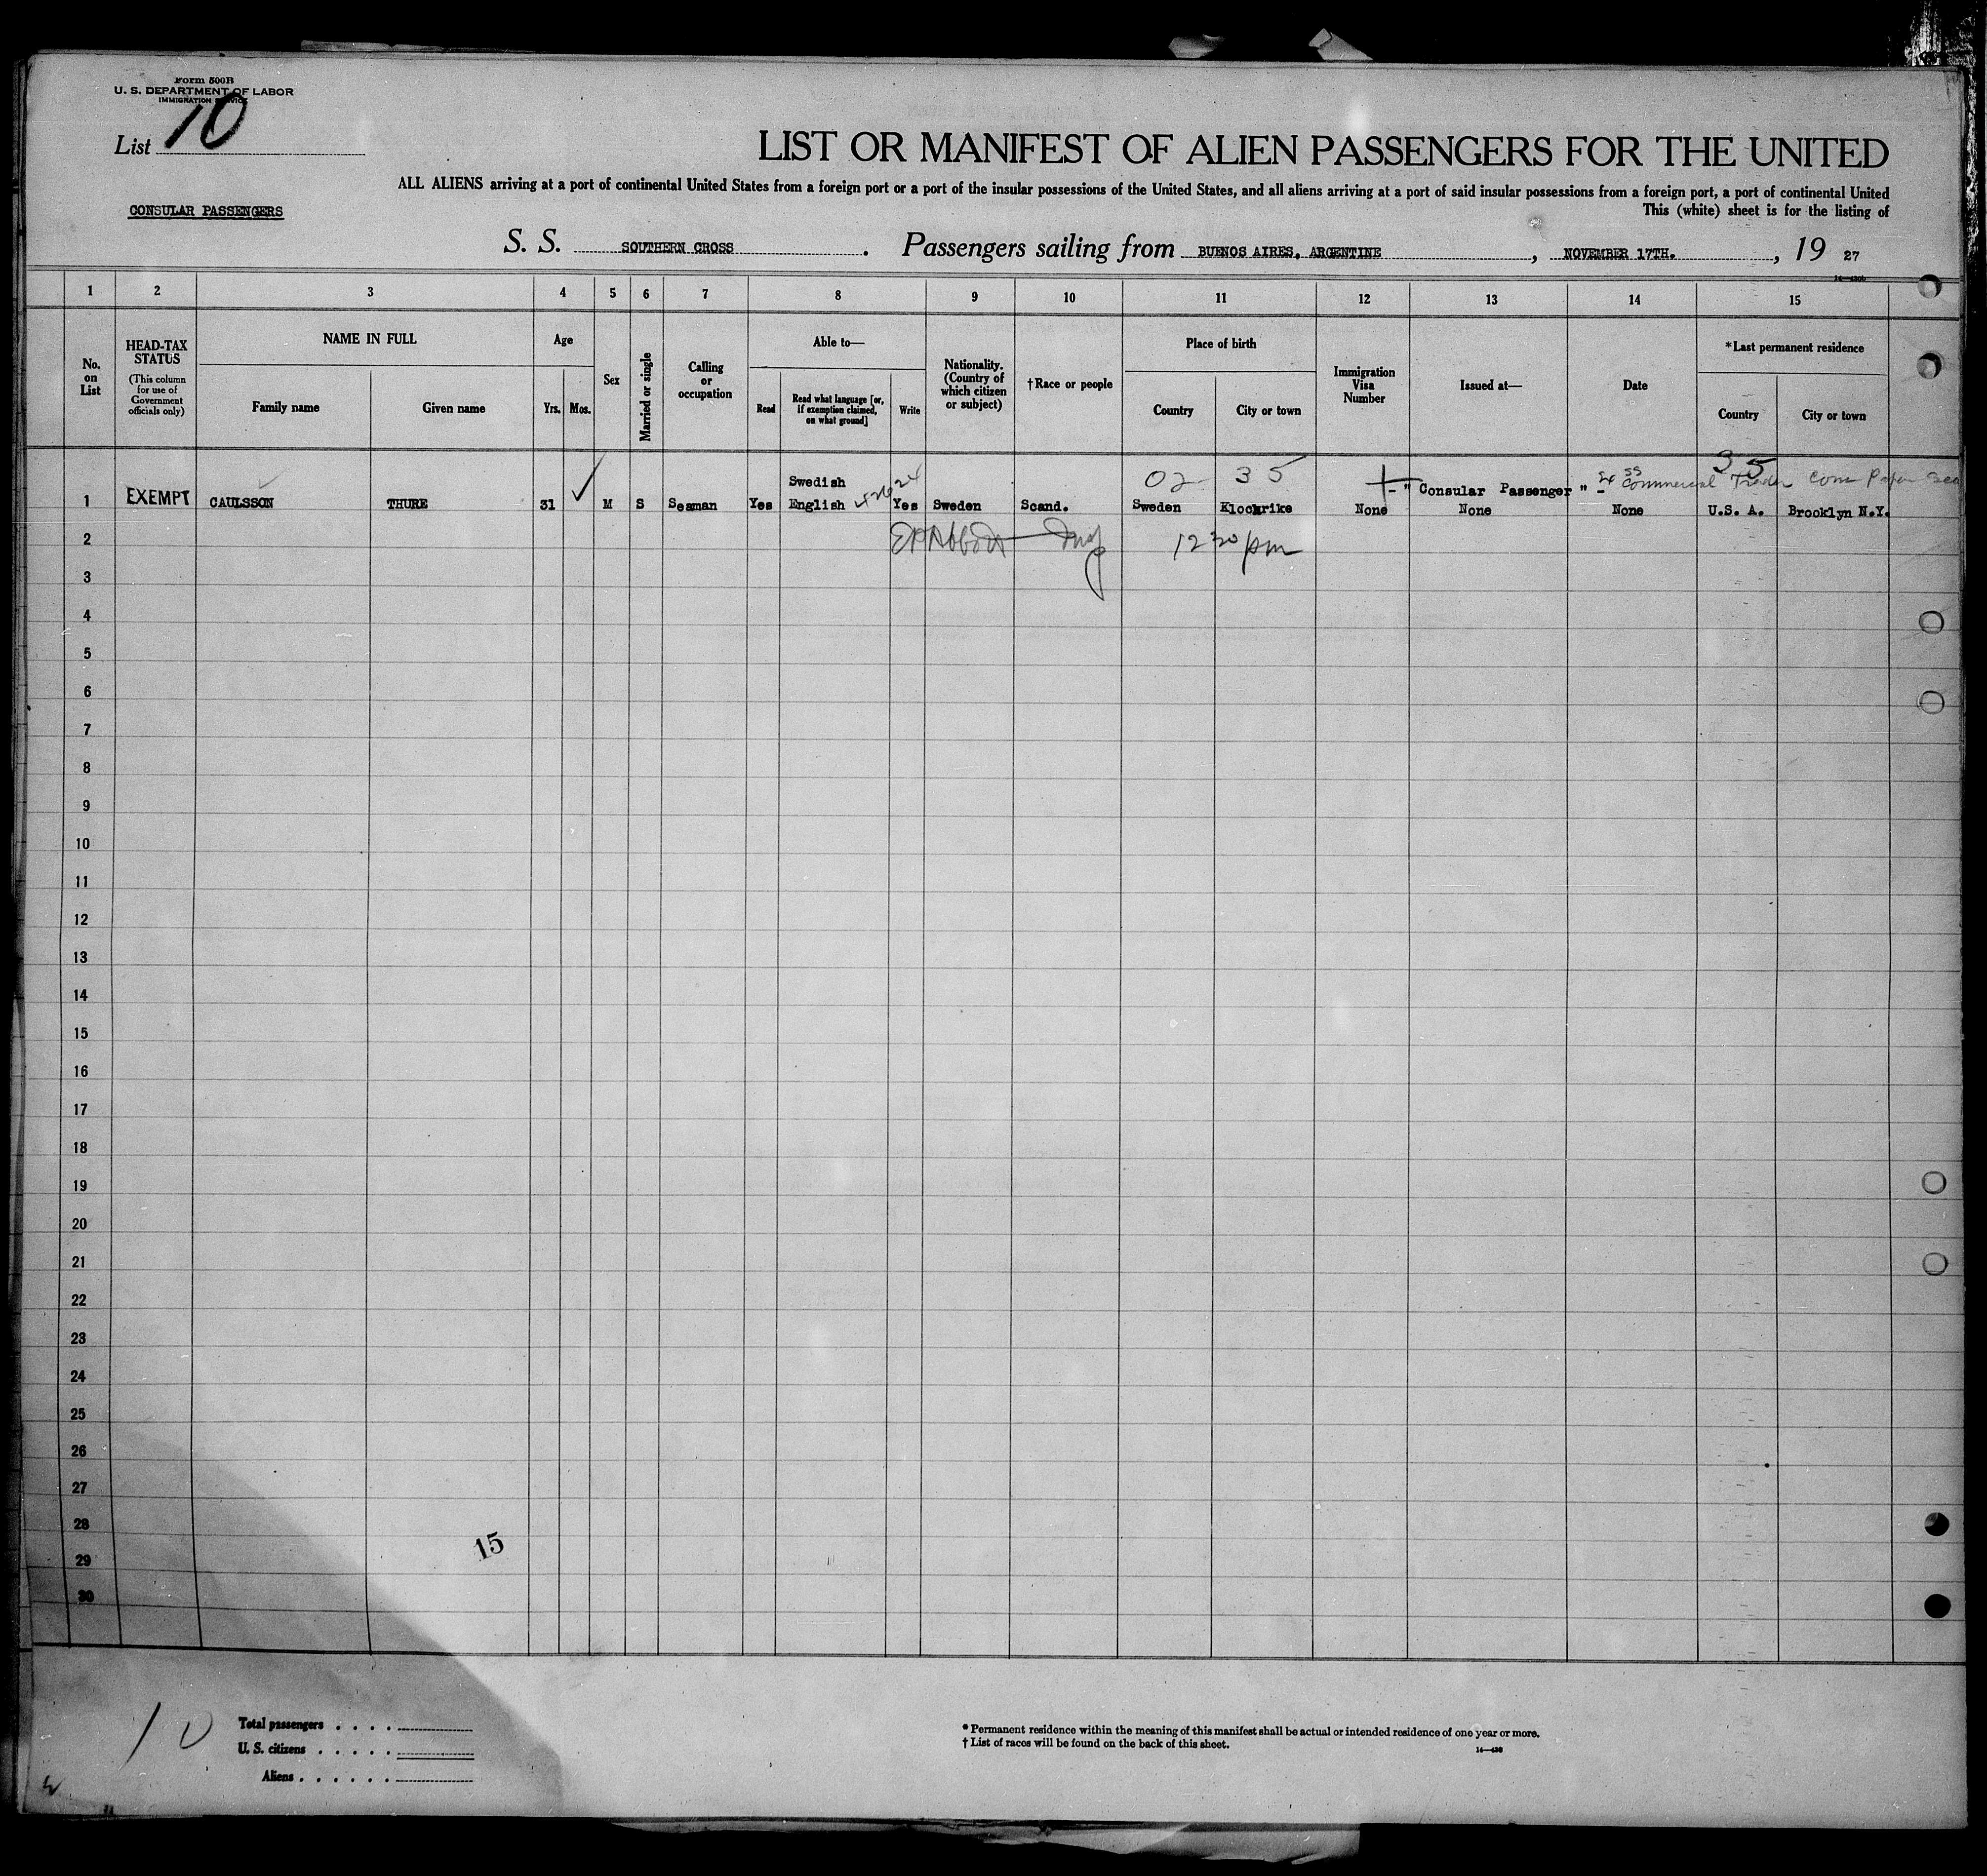 Form 500B
U. S. DEPARTMENT OF LABOR
IMMIGRATION SERVICE
List 10
LIST OR MANIFEST OF ALIEN PASSENGERS FOR THE UNITED
ALL ALIENS arriving at a port of continental United States from a foreign port or a port of the insular possessions of the United States, and all aliens arriving at a port of said insular possessions from a foreign port, a port of continental United
CONSULAR PASSENGERS
This (white) sheet is for the listing of
S. S. SOUTHERN CROSS . Passengers sailing from BUENOS AIRES, ARGENTINE , NOVEMBER 17TH. , 19 27
1 2 3 4 5 6 7 8 9 10 11 12 13 14 15
No. on List
HEAD-TAX STATUS
(This column for use of Government officials only)
NAME IN FULL
Family name
Given name
Age
Yrs.
Mos.
Sex
Married or single
Calling or occupation
Able to—
Read
Read what language [or, if exemption claimed, on what ground]
Write
Nationality. (Country of which citizen or subject)
†Race or people
Place of birth
Country
City or town
Immigration Visa Number
Issued at—
Date
*Last permanent residence
Country
City or town
02 35 35
Swedish
-" Consular Passenger "- Commercial Trader
1 EXEMPT CAULSSON THURE 31 M S Seaman Yes English Yes Sweden Scand. Sweden Klockrike None None None U.S. A. Brooklyn N.Y.
12 30 pm
2
3
4
5
6
7
8
9
10
11
12
13
14
15
16
17
18
19
20
21
22
23
24
25
26
27
28
29
30
15
10
Total passengers . . . .
U. S. citizens . . . . .
Aliens . . . . . .
* Permanent residence within the meaning of this manifest shall be actual or intended residence of one year or more.
† List of races will be found on the back of this sheet.